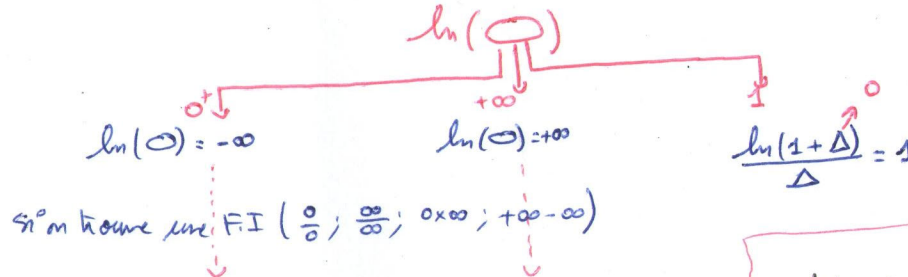 ln( )
0⁺ +∞ 1 0
ln( ) = -∞ ln( ) = +∞ ln(1 + Δ)/Δ = 1
si on trouve une F.I ( 0/0 ; ∞/∞ ; 0×∞ ; +∞ -∞ )